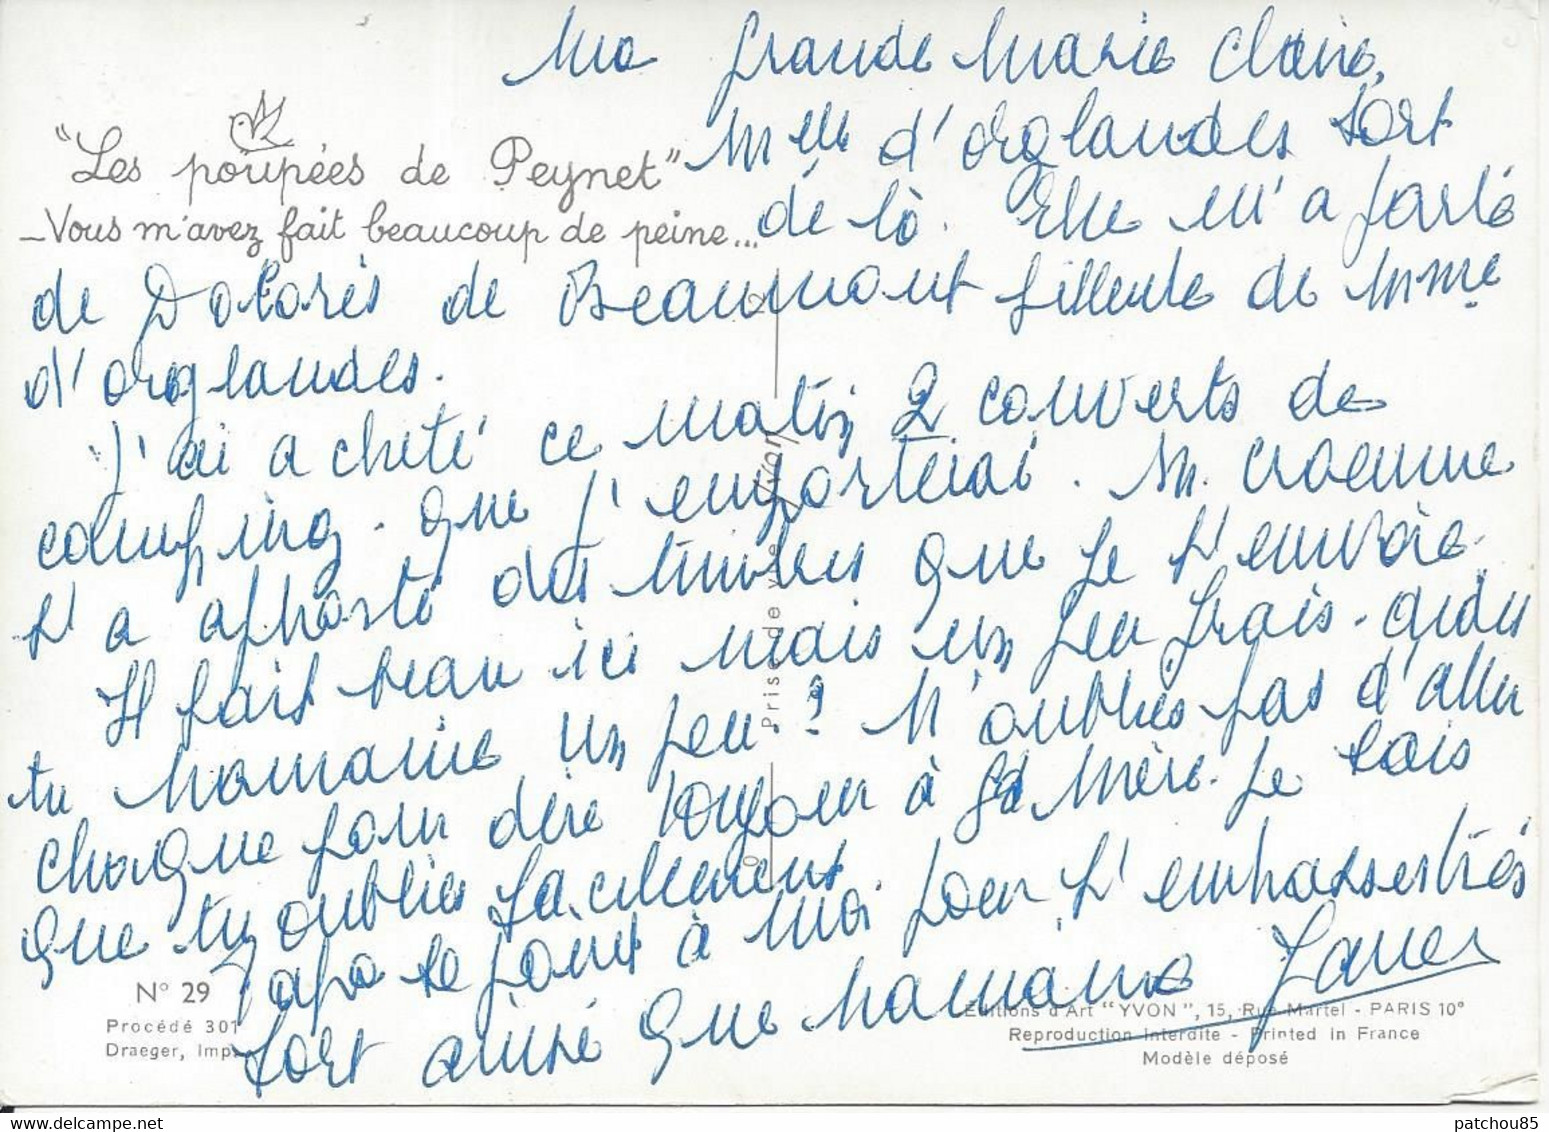 Ma grande Marie Claire,
"Les poupées de Peynet"
Melle d'Orglandes sort
_Vous m'avez fait beaucoup de peine...
de là. Elle m'a parlé
de Dolorès de Beaumont filleule de Mme
d'Orglandes.
J'ai acheté ce matin 2 couverts de
camping. Que j'emporterai. M.
t'a apporté des timbres que je t'envoie.
Il fait beau ici mais un peu frais. Aides
tu Mamanie un peu? N'oublies pas d'aller
chaque jour dire bonjour à Gd Mère. Je sais
que tu oublies facilement.
Papo se joint à moi pour t'embrasser très
fort ainsi que Mamanie
N° 29
Procédé 301
Draeger, Imp.
Prise de vue
Yvon
Editions d'Art "YVON", 15, Rue Martel - PARIS 10°
Reproduction Interdite - Printed in France
Modèle déposé
patchou85